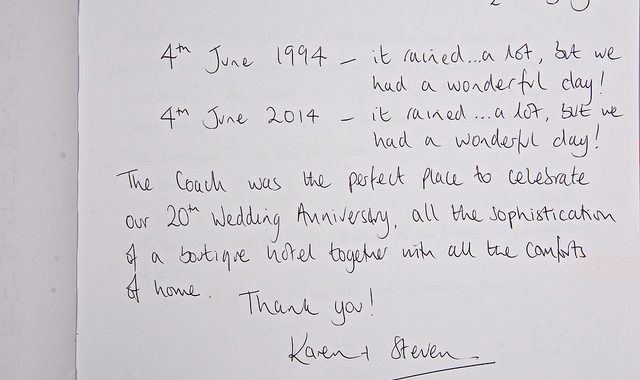 4th June 1994 – it rained...a lot, but we
had a wonderful day!
4th June 2014 – it rained...a lot, but we
had a wonderful day!
The Coach was the perfect place to celebrate
our 20th Wedding Anniversary, all the sophistication
of a boutique hotel together with all the comforts
of home.
Thank you!
Karen + Steven